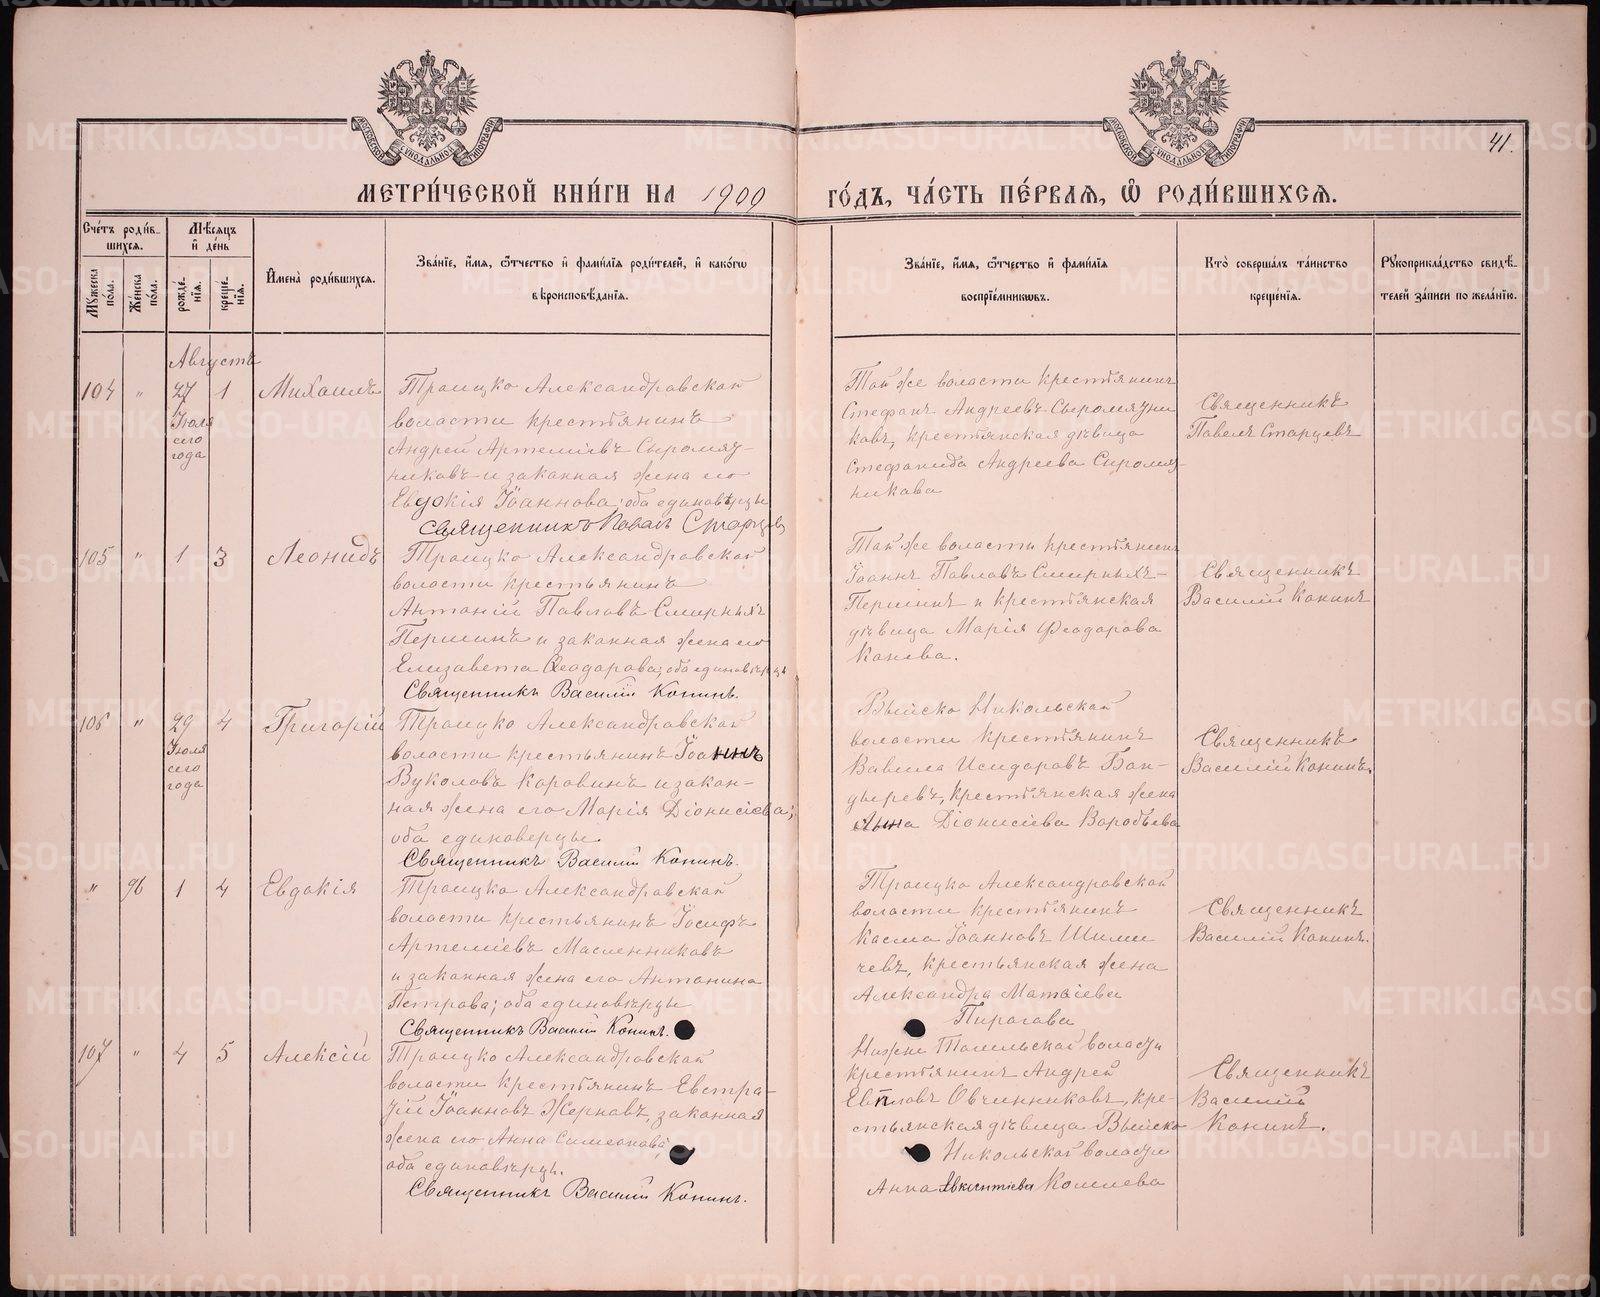 МЕТРИ́ЧЕСКОЙ КНИ́ГИ НА 1900 ГО́ДЪ, ЧА́СТЬ ПЕ́РВАЯ, Ѽ РОДИ́ВШИХСЯ.
41.
Сче́тъ роди́в-
шихся.
Мꙋжеска по́ла.
Же́нска по́ла.
Мѣ́сяцъ
и҆ де́нь
рожде́-
нїѧ.
креще́-
нїѧ.
И҆мена̀ роди́вшихся.
Зва́нїе, и҆́мя, ѻ҆́тчество и҆ фами́лїя роди́телей, и҆ како́гѡ
вѣроисповѣ́данїя.
Зва́нїе, и҆́мя, ѻ҆́тчество и҆ фами́лїя
воспрїе́мникѡвъ.
Кто̀ соверша́лъ та́инство
креще́нїя.
Рꙋкоприкла́дство свидѣ́-
телей за́писи по жела́нїю.
Августъ
104 " 27 1 Михаилъ
Іюля
сего
года
Троицко Александровской
волости крестьянинъ
Андрей Артеміевъ Сыромят-
никовъ и законная жена его
Евдокія Іоаннова; оба единовѣрцы
Священникъ Павелъ Старцевъ
Той же волости крестьянинъ
Стефанъ Андреевъ Сыромятни
ковъ, крестьянская дѣвица
Стефанида Андреева Сыромят-
никова
Священникъ
Павелъ Старцевъ
105 " 1 3 Леонидъ
Троицко Александровской
волости крестьянинъ
Антоній Павловъ Смирныхъ
Першинъ и законная жена его
Елизавета Ѳеодорова; оба единовѣрцы
Священникъ Василій Конинъ.
Той же волости крестьянинъ
Іоаннъ Павловъ Смирныхъ-
Першинъ и крестьянская
дѣвица Марія Ѳеодорова
Конева.
Священникъ
Василій Конинъ
106 " 29 4 Григорій
Іюля
сего
года
Троицко Александровской
волости крестьянинъ Іоаннъ
Вуколовъ Коровинъ и закон-
ная жена его Марія Діонисіева;
оба единоверцы
Священникъ Василій Конинъ.
Выйско Никольской
волости крестьянинъ
Вавила Исидоровъ Бон-
дыревъ, крестьянская жена
Діонисіева Воробьева
Священникъ
Василій Конинъ.
" 96 1 4 Евдокія
Троицко Александровской
волости крестьянинъ Іосифъ
Артеміевъ Масленниковъ
и законная жена его Антонина
Петрова; оба единовѣрцы
Священникъ Василій Конинъ.
Троицко Александровской
волости крестьянинъ
Косма Іоанновъ Шиши
чевъ, крестьянская жена
Александра Матѳіева
Пирогова
Священникъ
Василій Конинъ.
107 " 4 5 Алексій
Троицко Александровской
волости крестьянинъ Евстра-
тій Іоанновъ Жерновъ, законная
жена его Анна Симеонова;
оба единовѣрцы.
Священникъ Василій Конинъ.
Нижне Тагильской волости
крестьянинъ Андрей
Евпловъ Овчинниковъ, кре-
стьянская дѣвица Выйско
Никольской волости
Анна Авксентіева Комлева
Священникъ
Василій
Конинъ.
METRIKI.GASO-URAL.RU